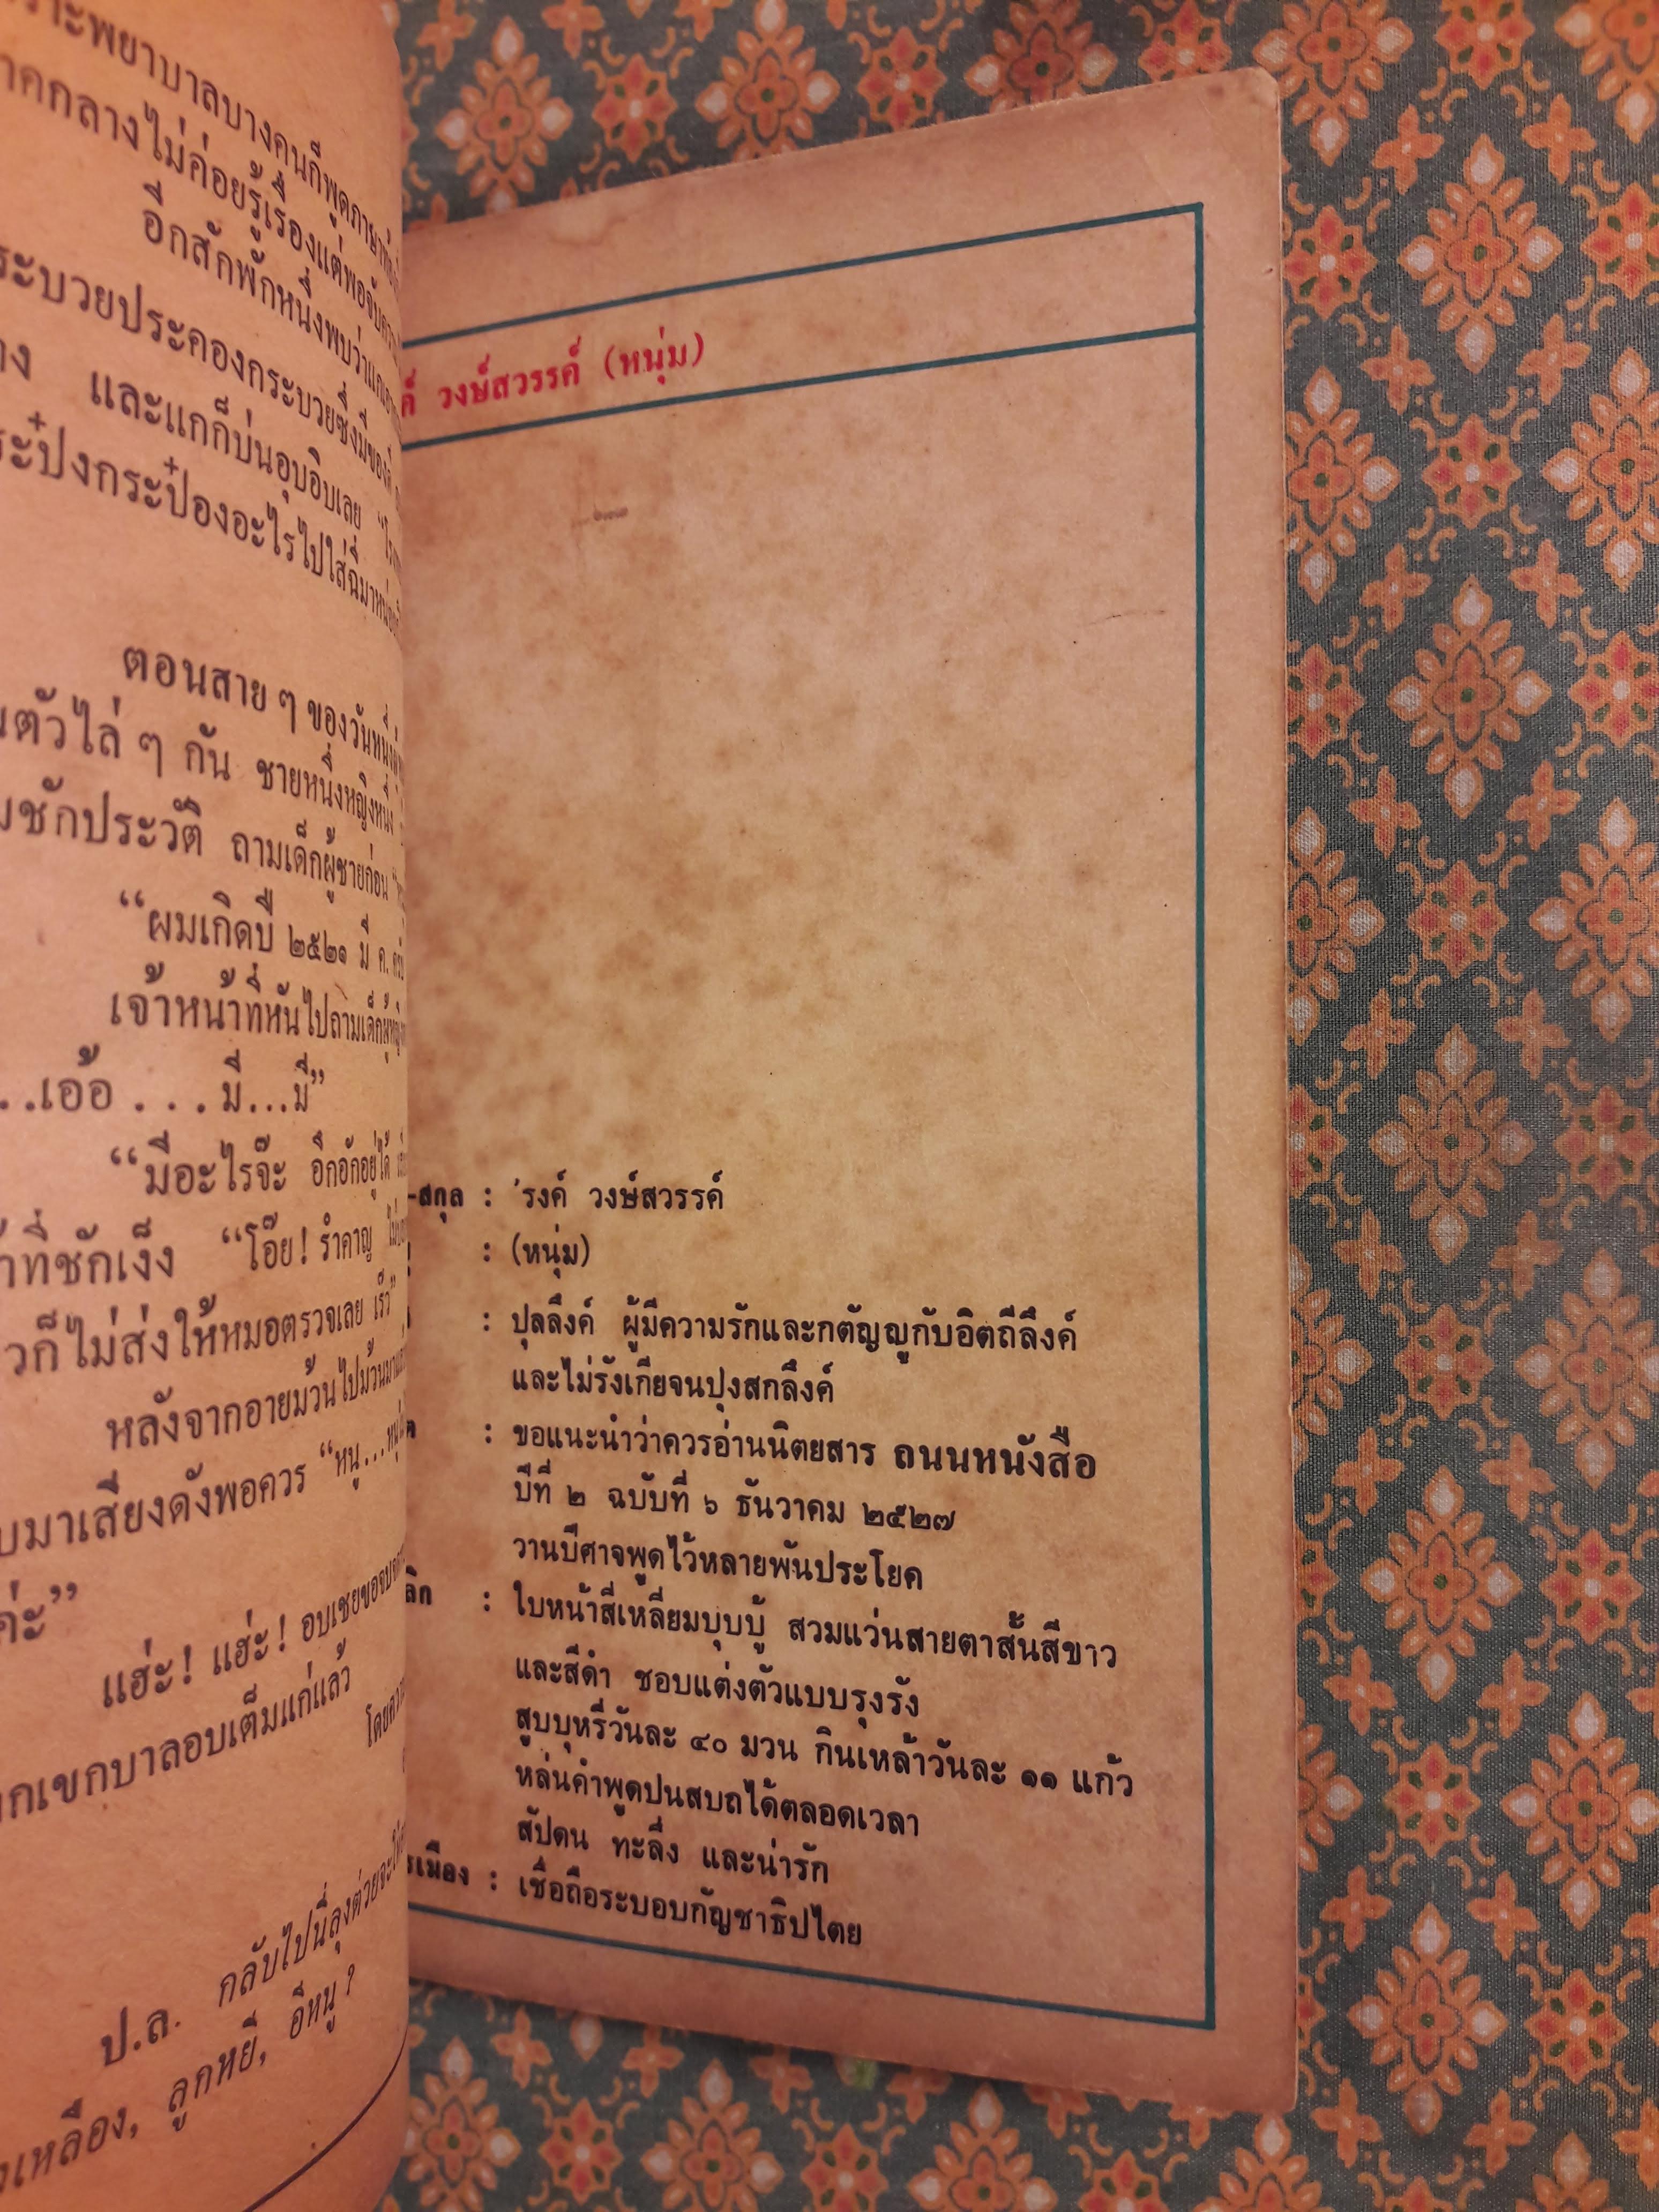 ราะพยาบาลบางคนก็พูดภาษา
าคกลางไม่ค่อยรู้เรื่องแต่พอจับ
อีกสักพักหนึ่งพบว่าแก
ระบวยประคองกระบวยซึ่งมีของดี
าง และแกก็บ่นอุบอิบเลย
ระป๋งกระป๋องอะไรไปใส่ฉี่มา
ตอนสาย ๆ ของวันหนึ่ง
นตัวไล่ ๆ กัน ชายหนึ่งหญิงหนึ่ง
มชักประวัติ ถามเด็กผู้ชายก่อน
“ผมเกิดปี ๒๕๒๑ มี ค.
เจ้าหน้าที่หันไปถามเด็กผู้หญิง
...เอ้อ . . . มี...มี”
“มีอะไรจ๊ะ อึกอักอยู่ได้
าที่ชักเง็ง “โอ๊ย! รำคาญ
วก็ไม่ส่งให้หมอตรวจเลย เร็ว”
หลังจากอายม้วนไปม้วนมา
บมาเสียงดังพอควร “หนู...
ค่ะ”
แฮ่ะ! แฮ่ะ! อบเชยขอจบ
ากเขกบาลอบเต็มแก่แล้ว
โดย
ป.ล. กลับไปนี่ลุงต่วยจะให้
งเหลือง, ลูกหยี, อีหนู ?
ค์ วงษ์สวรรค์ (หนุ่ม)
-สกุล : ’รงค์ วงษ์สวรรค์
: (หนุ่ม)
: ปุลลึงค์ ผู้มีความรักและกตัญญูกับอิตถีลึงค์
และไม่รังเกียจนปุงสกลึงค์
: ขอแนะนำว่าควรอ่านนิตยสาร ถนนหนังสือ
ปีที่ ๒ ฉบับที่ ๖ ธันวาคม ๒๕๒๗
วานปีศาจพูดไว้หลายพันประโยค
ลิก : ใบหน้าสี่เหลี่ยมบุบบู้ สวมแว่นสายตาสั้นสีขาว
และสีดำ ชอบแต่งตัวแบบรุงรัง
สูบบุหรี่วันละ ๔๐ มวน กินเหล้าวันละ ๑๑ แก้ว
หล่นคำพูดปนสบถได้ตลอดเวลา
สัปดน ทะลึ่ง และน่ารัก
รเมือง : เชื่อถือระบอบกัญชาธิปไตย